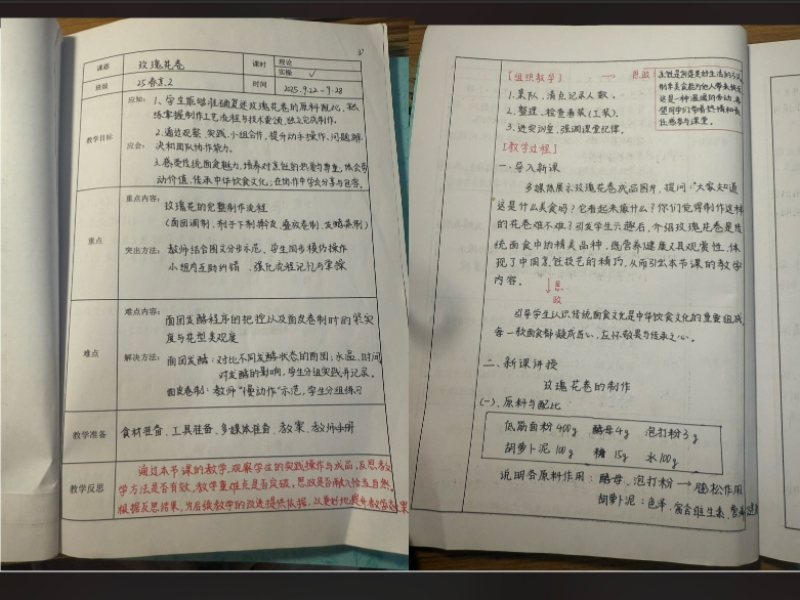 课题 玫瑰花卷 课时 理论
实操 ✓
班级 25春烹.2 时间 2025.9.22-9.28
教学目标
应知：1、学生能够准确复述玫瑰花卷的原料配比，熟
练掌握制作工艺流程与技术要领，独立完成制作。
2.通过观察、实践、小组合作，提升动手操作、问题解
应会：决和团队协作能力。
3.感受传统面点魅力，培养对烹饪的热爱与尊重，体会劳
动价值，传承中华饮食文化；在协作中学会分享与包容。
重点
重点内容：
玫瑰花的完整制作流程
（面团调制、剂子下剂擀皮、叠放卷制、发酵蒸制）
突出方法：教师结合图文分步示范，学生同步模仿操作
小组内互助纠错，强化流程记忆与掌握
难点
难点内容：
面团发酵程序的把控以及面皮卷制时的紧实
度与花型美观度
解决方法：面团发酵：对比不同发酵状态的面团；水温、时间
对发酵的影响，学生分组实践并记录。
面皮卷制：教师“慢动作”示范，学生分组练习
教学准备 食材准备、工具准备、多媒体准备、教案、教师手册
教学反思
通过本节课的教学，观察学生的实践操作与成品，反思教
学方法是否有效，教学重难点是否突破，思政是否融入恰当自然，
根据反思结果，为后续教学的改进提供依据，以更好地提升教学效果
【组织教学】 → 思政
1.集队，清点记录人数。
2.整理、检查着装（工装）。
3.进实训室，强调课堂纪律。
烹饪是创造美好生活的方式
制作美食能为他人带来快乐
这是一种温暖的劳动，希
望同学们带着热情和责
任感参与课堂。
【教学过程】
一、导入新课
多媒体展示玫瑰花卷成品图片，提问：“大家知道
这是什么美食吗？它看起来像什么？你们觉得制作这样
的花卷难不难？引发学生兴趣后，介绍玫瑰花卷是传
统面食中的精美品种，既营养健康又具观赏性，体
现了中国烹饪技艺的精巧，从而引出本节课的教学
内容。
↓ 思政
引导学生认识传统面食文化是中华饮食文化的重要组成，
每一款面食都凝聚匠心，应怀敬畏与传承之心。
二、新课讲授
玫瑰花卷的制作
(一)、原料与配比
低筋面粉 400g 酵母 4g 泡打粉 3g
胡萝卜泥 100g 糖 15g 水 100g
说明各原料作用：酵母、泡打粉 → 膨松作用
胡萝卜泥：色泽，富含维生素，营养